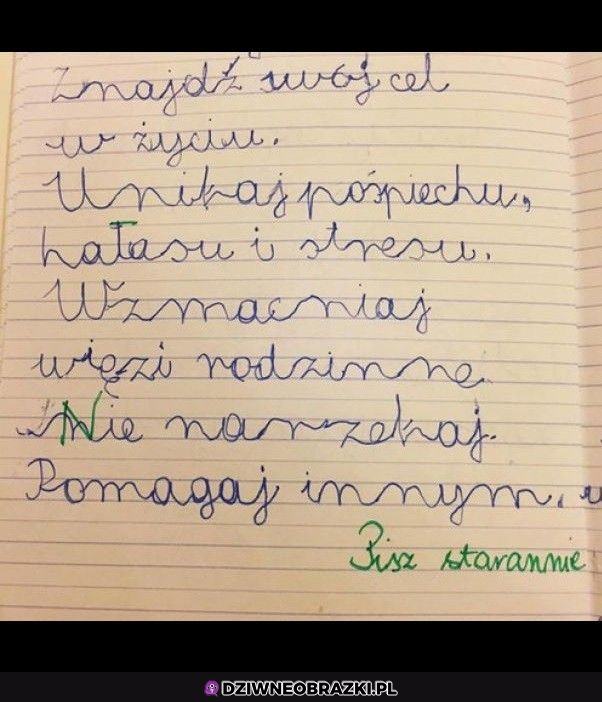 Znajdź swój cel
w życiu.
Unikaj pośpiechu,
hałasu i stresu.
Wzmacniaj
więzi rodzinne.
Nie narzekaj.
Pomagaj innym.
Pisz starannie
DZIWNEOBRAZKI.PL